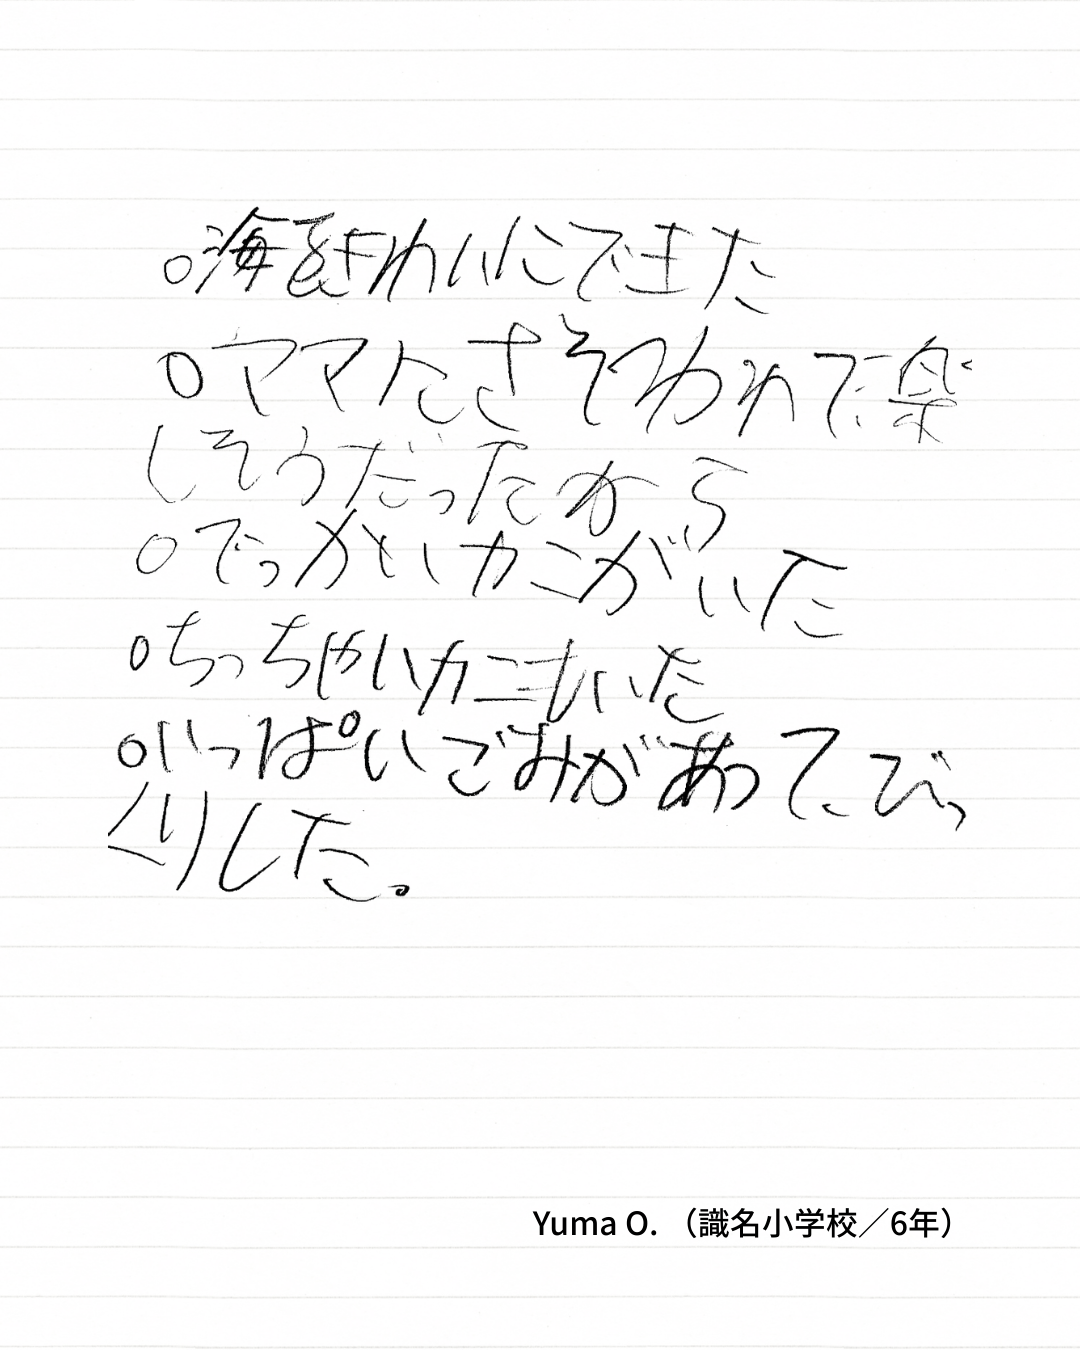 ○海をきれいにできた
○ママにさそわれて、楽
しそうだったから
○でっかいカニがいた
○ちっちゃいカニもいた
○いっぱいごみがあって、びっ
くりした。
Yuma O. （識名小学校／6年）